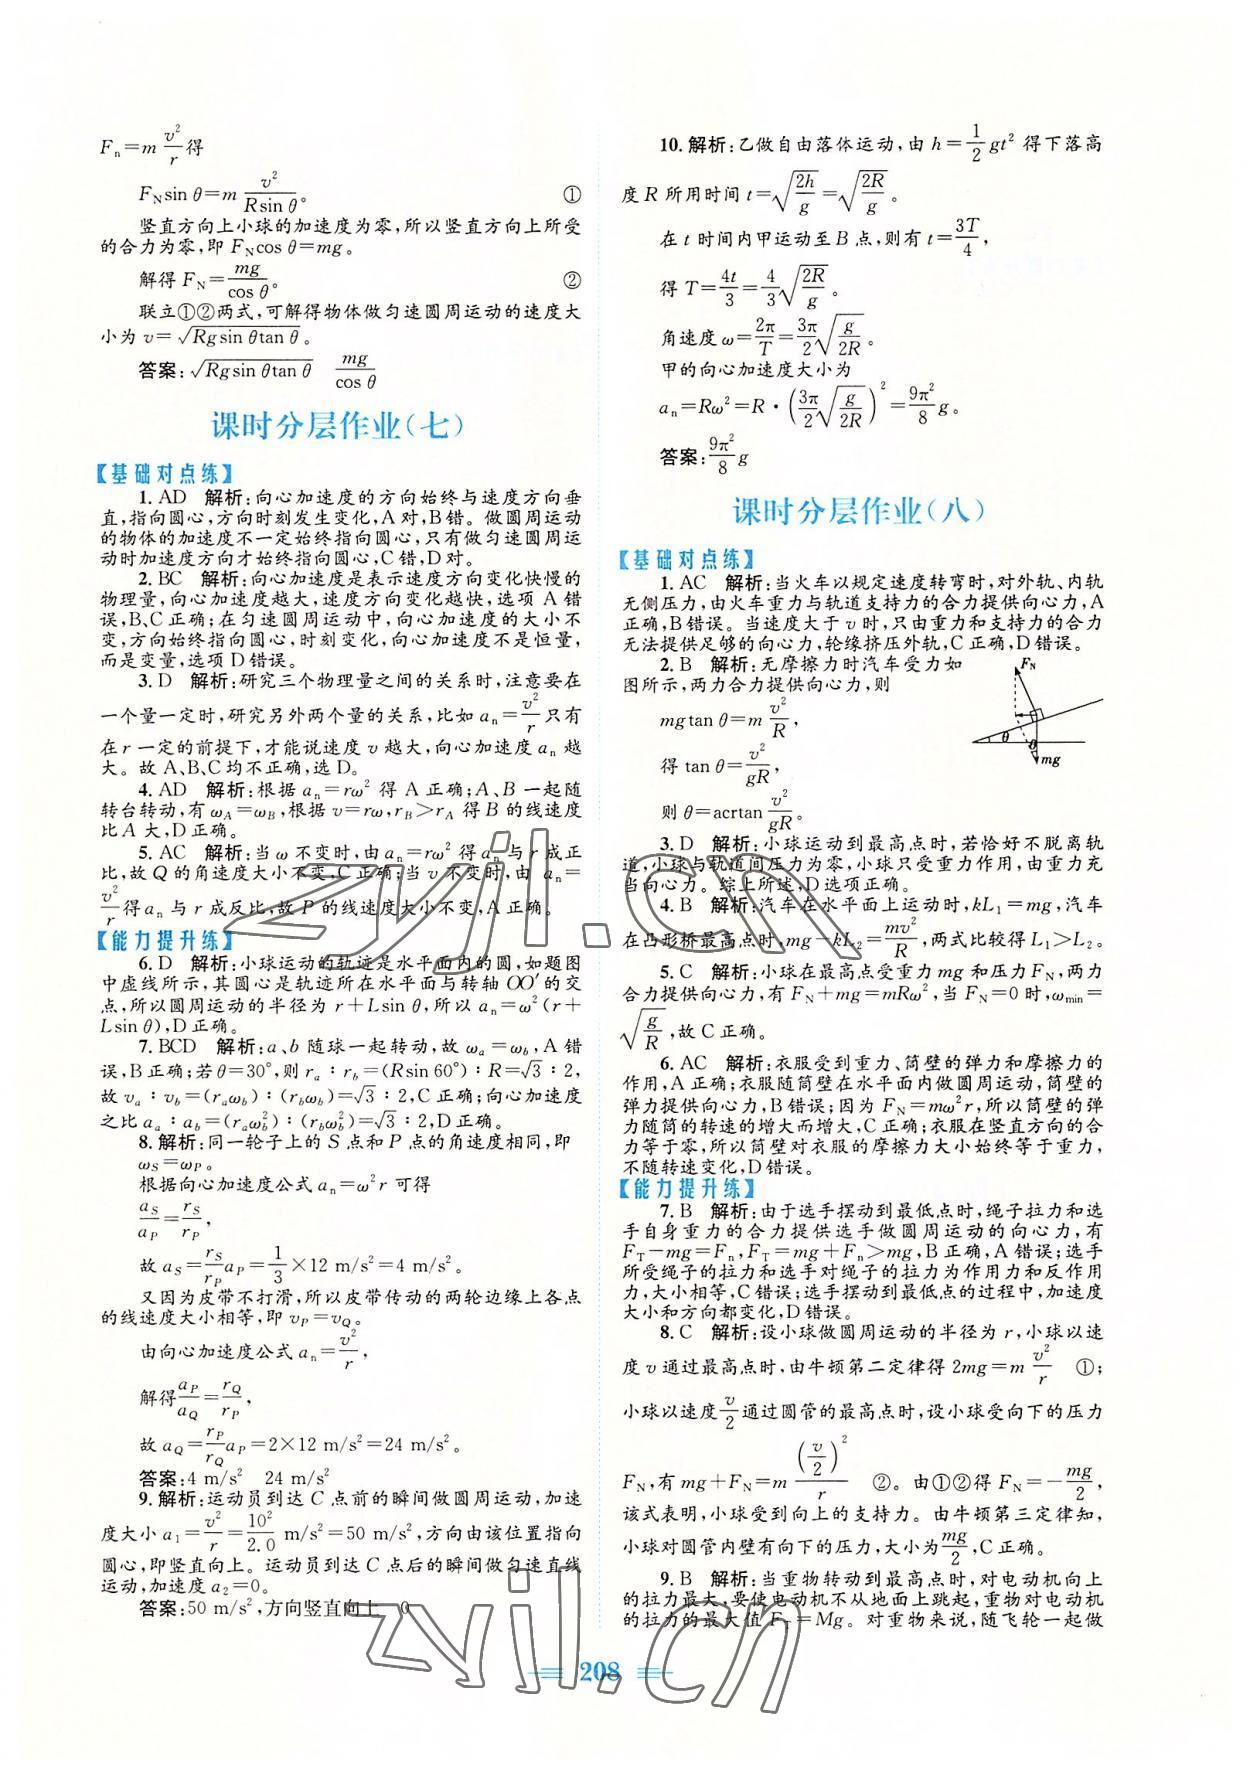 Fₙ=m v²/r 得
F_N sin θ=m v²/(Rsin θ)。 ①
竖直方向上小球的加速度为零,所以竖直方向上所受
的合力为零,即 F_N cos θ=mg。
解得 F_N=mg/cos θ。 ②
联立①②两式,可解得物体做匀速圆周运动的速度大
小为 v=√(Rgsin θtan θ)。
答案:√(Rgsin θtan θ) mg/cos θ
课时分层作业(七)
【基础对点练】
1. AD 解析:向心加速度的方向始终与速度方向垂
直,指向圆心,方向时刻发生变化,A对,B错。做圆周运动
的物体的加速度不一定始终指向圆心,只有做匀速圆周运
动时加速度方向才始终指向圆心,C错,D对。
2. BC 解析:向心加速度是表示速度方向变化快慢的
物理量,向心加速度越大,速度方向变化越快,选项 A错
误,B、C正确;在匀速圆周运动中,向心加速度的大小不
变,方向始终指向圆心,时刻变化,向心加速度不是恒量,
而是变量,选项D错误。
3. D 解析:研究三个物理量之间的关系时,注意要在
一个量一定时,研究另外两个量的关系,比如 aₙ=v²/r 只有
在 r 一定的前提下,才能说速度 v 越大,向心加速度 aₙ 越
大。故A、B、C均不正确,选D。
4. AD 解析:根据 aₙ=rω² 得 A 正确;A、B 一起随
转台转动,有 ω_A=ω_B,根据 v=rω,r_B>r_A 得 B 的线速度
比A大,D正确。
5. AC 解析:当 ω 不变时,由 aₙ=rω² 得 aₙ 与 r 成正
比,故Q的角速度大小不变,C正确;当 v不变时,由 aₙ=
v²/r 得 aₙ 与 r 成反比,故 P 的线速度大小不变,A正确。
【能力提升练】
6. D 解析:小球运动的轨迹是水平面内的圆,如题图
中虚线所示,其圆心是轨迹所在水平面与转轴 OO′的交
点,所以圆周运动的半径为 r+Lsin θ,所以 aₙ=ω²(r+
Lsin θ),D正确。
7. BCD 解析:a、b 随球一起转动,故 ω_a=ω_b,A 错
误,B正确;若θ=30°,则 r_a∶r_b=(Rsin 60°)∶R=√3∶2,
故 v_a∶v_b=(r_aω_b)∶(r_bω_b)=√3∶2,C正确;向心加速度
之比 a_a∶a_b=(r_aω_b²)∶(r_bω_b²)=√3∶2,D正确。
8. 解析:同一轮子上的 S 点和 P 点的角速度相同,即
ω_S=ω_P。
根据向心加速度公式 aₙ=ω²r 可得
a_S/a_P=r_S/r_P,
故 a_S=r_S/r_P a_P=1/3×12 m/s²=4 m/s²。
又因为皮带不打滑,所以皮带传动的两轮边缘上各点
的线速度大小相等,即 v_P=v_Q。
由向心加速度公式 aₙ=v²/r,
解得 a_P/a_Q=r_Q/r_P,
故 a_Q=r_P/r_Q a_P=2×12 m/s²=24 m/s²。
答案:4 m/s² 24 m/s²
9. 解析:运动员到达 C 点前的瞬间做圆周运动,加速
度大小 a₁=v²/r=10²/2.0 m/s²=50 m/s²,方向由该位置指向
圆心,即竖直向上。运动员到达 C 点后的瞬间做匀速直线
运动,加速度 a₂=0。
答案:50 m/s²,方向竖直向上 0
10. 解析:乙做自由落体运动,由 h=1/2 gt² 得下落高
度 R 所用时间 t=√(2h/g)=√(2R/g)。
在 t 时间内甲运动至 B 点,则有 t=3T/4,
得 T=4t/3=4/3√(2R/g)。
角速度 ω=2π/T=3π/2√(g/2R)。
甲的向心加速度大小为
aₙ=Rω²=R·(3π/2√(g/2R))²=9π²/8 g。
答案:9π²/8 g
课时分层作业(八)
【基础对点练】
1. AC 解析:当火车以规定速度转弯时,对外轨、内轨
无侧压力,由火车重力与轨道支持力的合力提供向心力,A
正确,B错误。当速度大于 v 时,只由重力和支持力的合力
无法提供足够的向心力,轮缘挤压外轨,C正确,D错误。
2. B 解析:无摩擦力时汽车受力如
图所示,两力合力提供向心力,则
mgtan θ=m v²/R,
得 tan θ=v²/gR,
则 θ=acrtan v²/gR。
F_N
θ
θ
mg
3. D 解析:小球运动到最高点时,若恰好不脱离轨
道,小球与轨道间压力为零,小球只受重力作用,由重力充
当向心力。综上所述,D选项正确。
4. B 解析:汽车在水平面上运动时,kL₁=mg,汽车
在凸形桥最高点时,mg-kL₂=mv²/R,两式比较得 L₁>L₂。
5. C 解析:小球在最高点受重力 mg 和压力 F_N,两力
合力提供向心力,有 F_N+mg=mRω²,当 F_N=0 时,ω_min=
√(g/R),故 C 正确。
6. AC 解析:衣服受到重力、筒壁的弹力和摩擦力的
作用,A正确;衣服随筒壁在水平面内做圆周运动,筒壁的
弹力提供向心力,B错误;因为 F_N=mω²r,所以筒壁的弹
力随筒的转速的增大而增大,C正确;衣服在竖直方向的合
力等于零,所以筒壁对衣服的摩擦力大小始终等于重力,
不随转速变化,D错误。
【能力提升练】
7. B 解析:由于选手摆动到最低点时,绳子拉力和选
手自身重力的合力提供选手做圆周运动的向心力,有
F_T-mg=Fₙ,F_T=mg+Fₙ>mg,B正确,A错误;选手
所受绳子的拉力和选手对绳子的拉力为作用力和反作用
力,大小相等,C错误;选手摆动到最低点的过程中,加速度
大小和方向都变化,D错误。
8. C 解析:设小球做圆周运动的半径为 r,小球以速
度 v 通过最高点时,由牛顿第二定律得 2mg=m v²/r ①;
小球以速度 v/2 通过圆管的最高点时,设小球受向下的压力
F_N,有 mg+F_N=m (v/2)²/r ②。由①②得 F_N=-mg/2,
该式表明,小球受到向上的支持力。由牛顿第三定律知,
小球对圆管内壁有向下的压力,大小为 mg/2,C正确。
9. B 解析:当重物转动到最高点时,对电动机向上
的拉力最大,要使电动机不从地面上跳起,重物对电动机
的拉力的最大值 F_T=Mg。对重物来说,随飞轮一起做
208
zyjl.cn
zyjl.cn